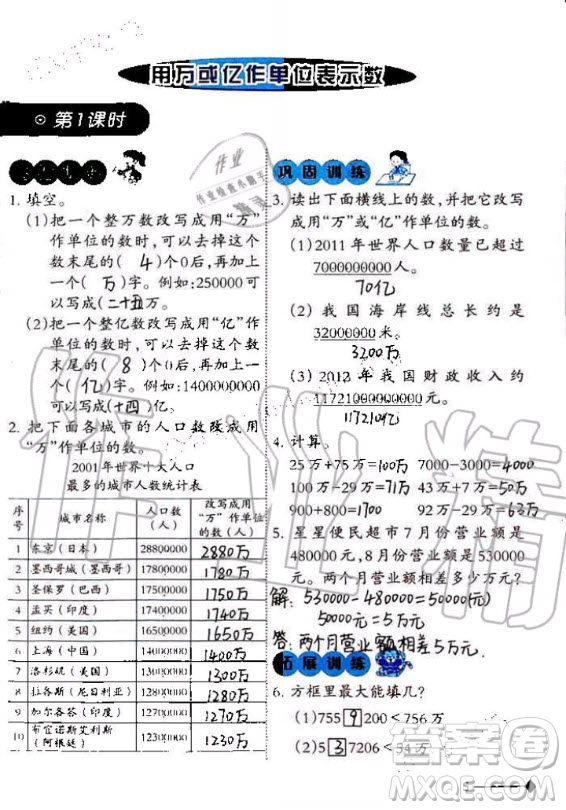 用万或亿作单位表示数
第1课时
1. 填空。
(1)把一个整万数改写成用“万”
作单位的数时，可以去掉这个
数末尾的( 4 )个0后，再加上
一个( 万 )字。例如:250000可
以写成(二十五)万。
(2)把一个整亿数改写成用“亿”作
单位的数时，可以去掉这个数
末尾的( 8 )个0后，再加上一
个(亿)字。例如:1400000000
可以写成(十四)亿。
2. 把下面各城市的人口数改成用
“万”作单位的数。
2001年世界十大人口
最多的城市人数统计表
序号 城市名称 人口数(人) 改写成用“万”作单位的数(人)
1 东京(日本) 28800000 2880万
2 墨西哥城(墨西哥) 17800000 1780万
3 圣保罗(巴西) 17500000 1750万
4 孟买(印度) 17400000 1740万
5 纽约(美国) 16500000 1650万
6 上海(中国) 14000000 1400万
7 洛杉矶(美国) 13000000 1300万
8 拉各斯(尼日利亚) 12700000 1270万
9 加尔各答(印度) 12700000 1270万
10 布宜诺斯艾利斯(阿根廷) 12300000 1230万
巩固训练
3. 读出下面横线上的数，并把它改写
成用“万”或“亿”作单位的数。
(1)2011年世界人口数量已超过
7000000000人。
70亿
(2)我国海岸线总长约是
32000000米。
3200万
(3)2012年我国财政收入约
11721000000000元。
117210亿
4. 计算。
25万+75万=100万 7000-3000=4000
100万-29万=71万 55万+15万=70万
900+800=1700 92万-29万=63万
5. 星星便民超市7月份营业额是
480000元，8月份营业额是530000
元。两个月营业额相差多少万元?
解: 530000-480000=50000元
50000元=5万元
答: 两个月营业额相差5万元。
拓展训练
6. 方框里最大能填几?
(1)755 9 200<756万
(2)5 3 7206<54万
作业精
答案卷
MXQE.COM